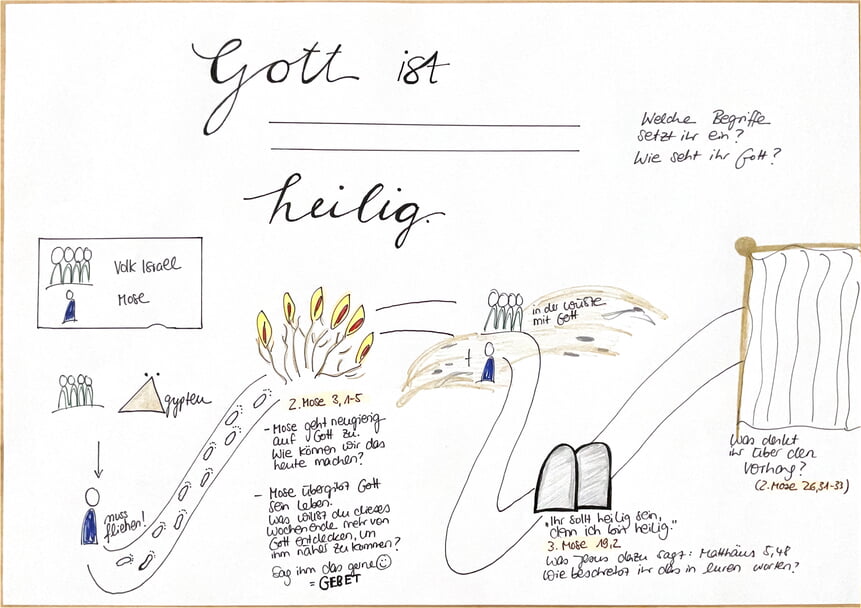 Gott ist
heilig.
Welche Begriffe
setzt ihr ein?
Wie seht ihr Gott?
Volk Israel
Mose
Ägypten
muss
fliehen!
2. Mose 3, 1-5
- Mose geht neugierig
auf Gott zu.
Wie können wir das
heute machen?
- Mose übergibt Gott
sein Leben.
Was willst du dieses
Wochenende mehr von
Gott entdecken, um
ihm näher zu kommen?
Sag ihm das gerne ☺
= GEBET
in der Wüste
mit Gott
+
"Ihr sollt heilig sein,
denn ich bin heilig."
3. Mose 19,2
Was Jesus dazu sagt: Matthäus 5,48
Wie beschreibt ihr das in euren Worten?
Was denkt
ihr über den
Vorhang?
(2. Mose 26,31-33)